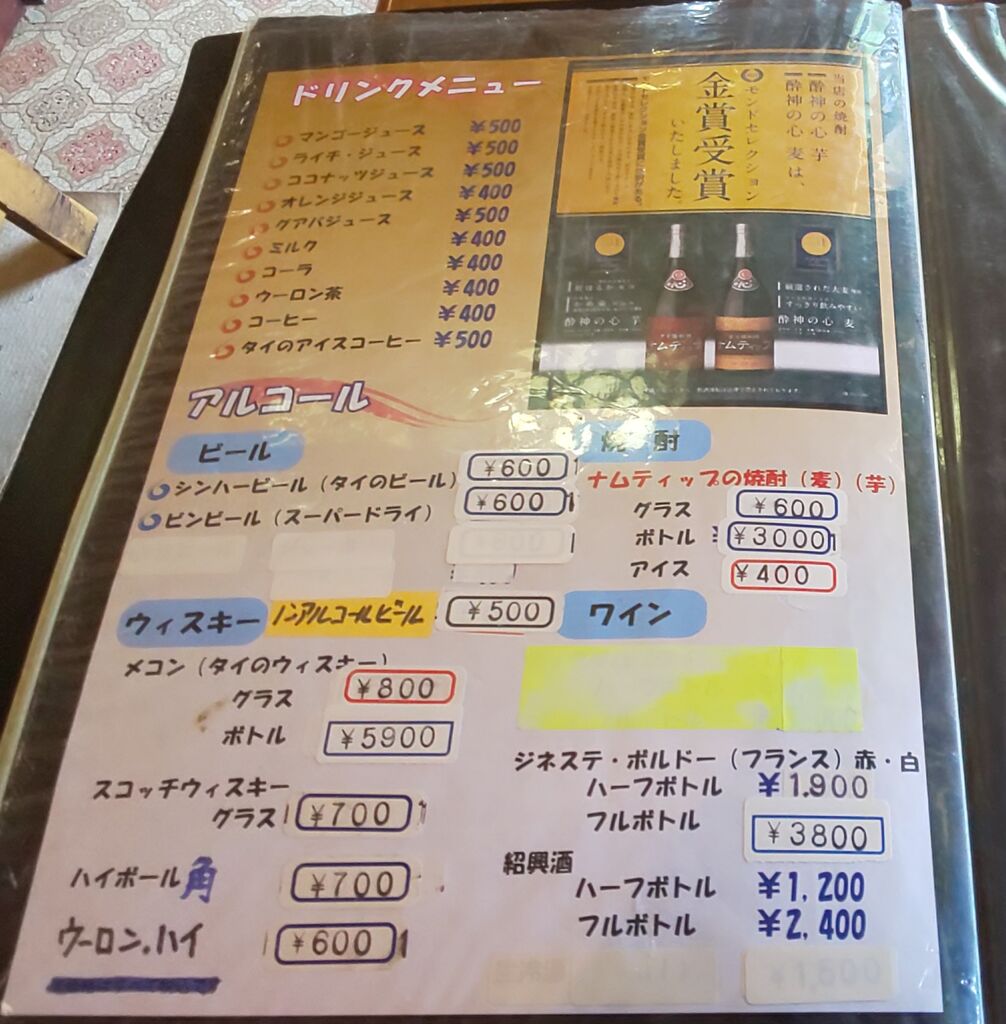 ドリンクメニュー
マンゴージュース ¥500
ライチ・ジュース ¥500
ココナッツジュース ¥500
オレンジジュース ¥400
グアバジュース ¥500
ミルク ¥400
コーラ ¥400
ウーロン茶 ¥400
コーヒー ¥400
タイのアイスコーヒー ¥500
当店の焼酎
酔神の心 芋
酔神の心 麦は、
モンドセレクション
金賞受賞
いたしました。
酔神の心 芋
厳選された大麦
すっきり飲みやすい
酔神の心 麦
アルコール
ビール
シンハービール（タイのビール） ¥600
ビンビール（スーパードライ） ¥600
ノンアルコールビール ¥500
ウィスキー
メコン（タイのウィスキー）
グラス ¥800
ボトル ¥5900
スコッチウィスキー
グラス ¥700
ハイボール角 ¥700
ウーロン.ハイ ¥600
焼酎
ナムティップの焼酎（麦）（芋）
グラス ¥600
ボトル ¥3000
アイス ¥400
ワイン
ジネステ・ボルドー（フランス）赤・白
ハーフボトル ¥1.900
フルボトル ¥3800
紹興酒
ハーフボトル ¥1,200
フルボトル ¥2,400